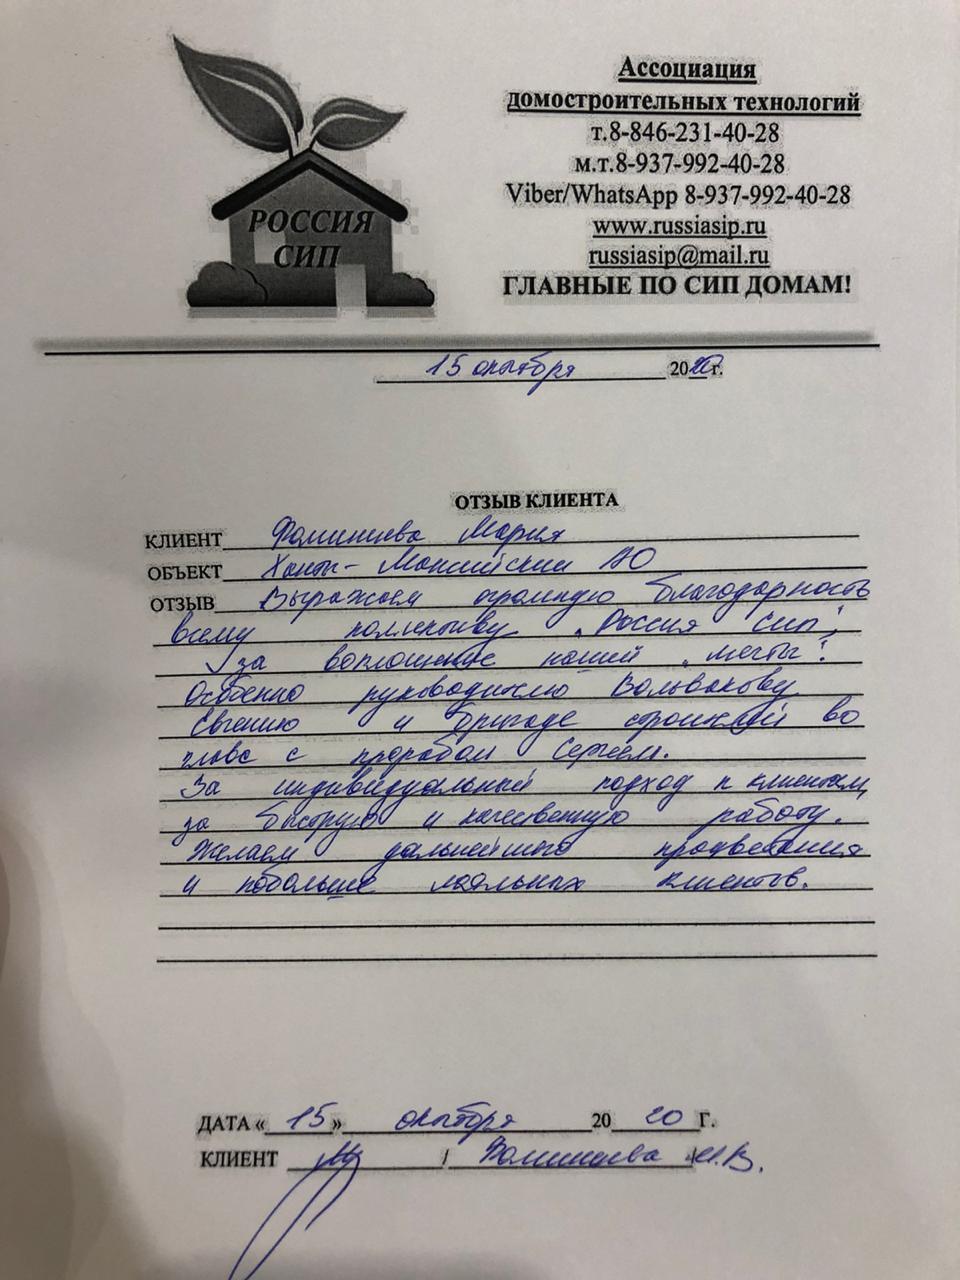 РОССИЯ
СИП
Ассоциация
домостроительных технологий
т.8-846-231-40-28
м.т.8-937-992-40-28
Viber/WhatsApp 8-937-992-40-28
www.russiasip.ru
russiasip@mail.ru
ГЛАВНЫЕ ПО СИП ДОМАМ!
15 октября 2020г.
ОТЗЫВ КЛИЕНТА
КЛИЕНТ Мария
ОБЪЕКТ Ханты-Мансийский АО
ОТЗЫВ Выражаем огромную благодарность
всему коллективу "Россия Сип",
за воплощение нашей "мечты".
Особенно руководителю
Евгению и бригаде строителей во
главе с прорабом Сергеем.
За индивидуальный подход к клиентам,
за быструю и качественную работу.
Желаем дальнейшего процветания
и побольше лояльных клиентов.
ДАТА «15» октября 2020 Г.
КЛИЕНТ / / М.В.